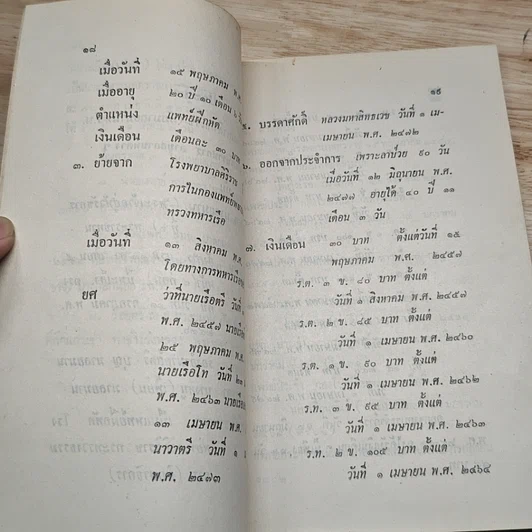 ๑๘
เมื่อวันที่ ๑๕ พฤษภาคม พ.ศ.
เมื่ออายุ ๒๐ ปี ๑๐ เดือน
ตำแหน่ง แพทย์ฝึกหัด
เงินเดือน เดือนละ ๓๐ บาท
๓. ย้ายจาก โรงพยาบาลศิริราช
การในกองแพทย์
ทรวงทหารเรือ
เมื่อวันที่ ๑๓ สิงหาคม พ.ศ.
โดยทางการทหารเรือ
ยศ ว่าที่นายเรือตรี วันที่
พ.ศ. ๒๔๕๗ นายเรือ
๒๕ พฤษภาคม พ.ศ.
นายเรือโท วันที่ ๒๑
พ.ศ. ๒๔๖๓ นายเรือ
๑๓ เมษายน พ.ศ.
นาวาตรี วันที่ ๑
พ.ศ. ๒๔๗๓
๑๙
๕. บรรดาศักดิ์ หลวงมหาสิทธเวช วันที่ ๑ เม-
เมษายน พ.ศ. ๒๔๗๒
ออกจากประจำการ เพราะลาป่วย ๙๐ วัน
เมื่อวันที่ ๑๒ มิถุนายน พ.ศ.
๒๔๗๗ อายุได้ ๔๐ ปี ๑๑
เดือน ๓ วัน
๗. เงินเดือน ๓๐ บาท ตั้งแต่วันที่ ๑๕
พฤษภาคม พ.ศ. ๒๔๕๗
ร.ต. ๓ ข. ๘๐ บาท ตั้งแต่
วันที่ ๑ สิงหาคม พ.ศ. ๒๔๕๗
ร.ต. ๒ ข. ๘๕ บาท ตั้งแต่
วันที่ ๑ เมษายน พ.ศ. ๒๔๖๐
ร.ต. ๑ ข. ๙๐ บาท ตั้งแต่
วันที่ ๑ เมษายน พ.ศ. ๒๔๖๒
ร.ท. ๓ ข. ๙๕ บาท ตั้งแต่
วันที่ ๑ เมษายน พ.ศ. ๒๔๖๓
ร.ท. ๒ ข. ๑๐๕ บาท ตั้งแต่
วันที่ ๑ เมษายน พ.ศ. ๒๔๖๔